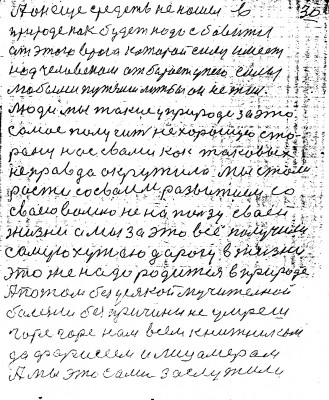 А он еще средств не нашли в 30
природе как будет надо сбавити
от этого врага которай силу имеет
над человекам от бирает у него силы
любыми путями лиш бы он не жил.
Люди мы такие у природе за это
самое получит нехорошую сто
рану нас вами как таковых
неправда окружила Мы стали
расти со своим развитием со
своего волию не на ползу сваей
жизни а мы за это все получили
самую худую дарогу в жизни
это же надо родится в природе
А потом без усякой мучителной
болезни без причини не умреш
горе горе нам всем книжникам
да фарисеем и лицамерам
А мы это сами заслужили